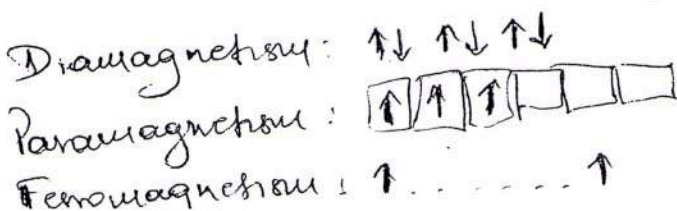 Diamagnetism: ↑↓ ↑↓ ↑↓
Paramagnetism: ↑ ↑ ↑
Ferromagnetism: ↑.........↑